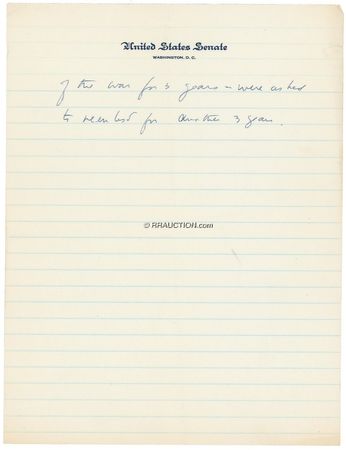 United States Senate
WASHINGTON, D. C.
of the war for 3 years – were asked
to reenlist for another 3 years.
© RRAUCTION.com